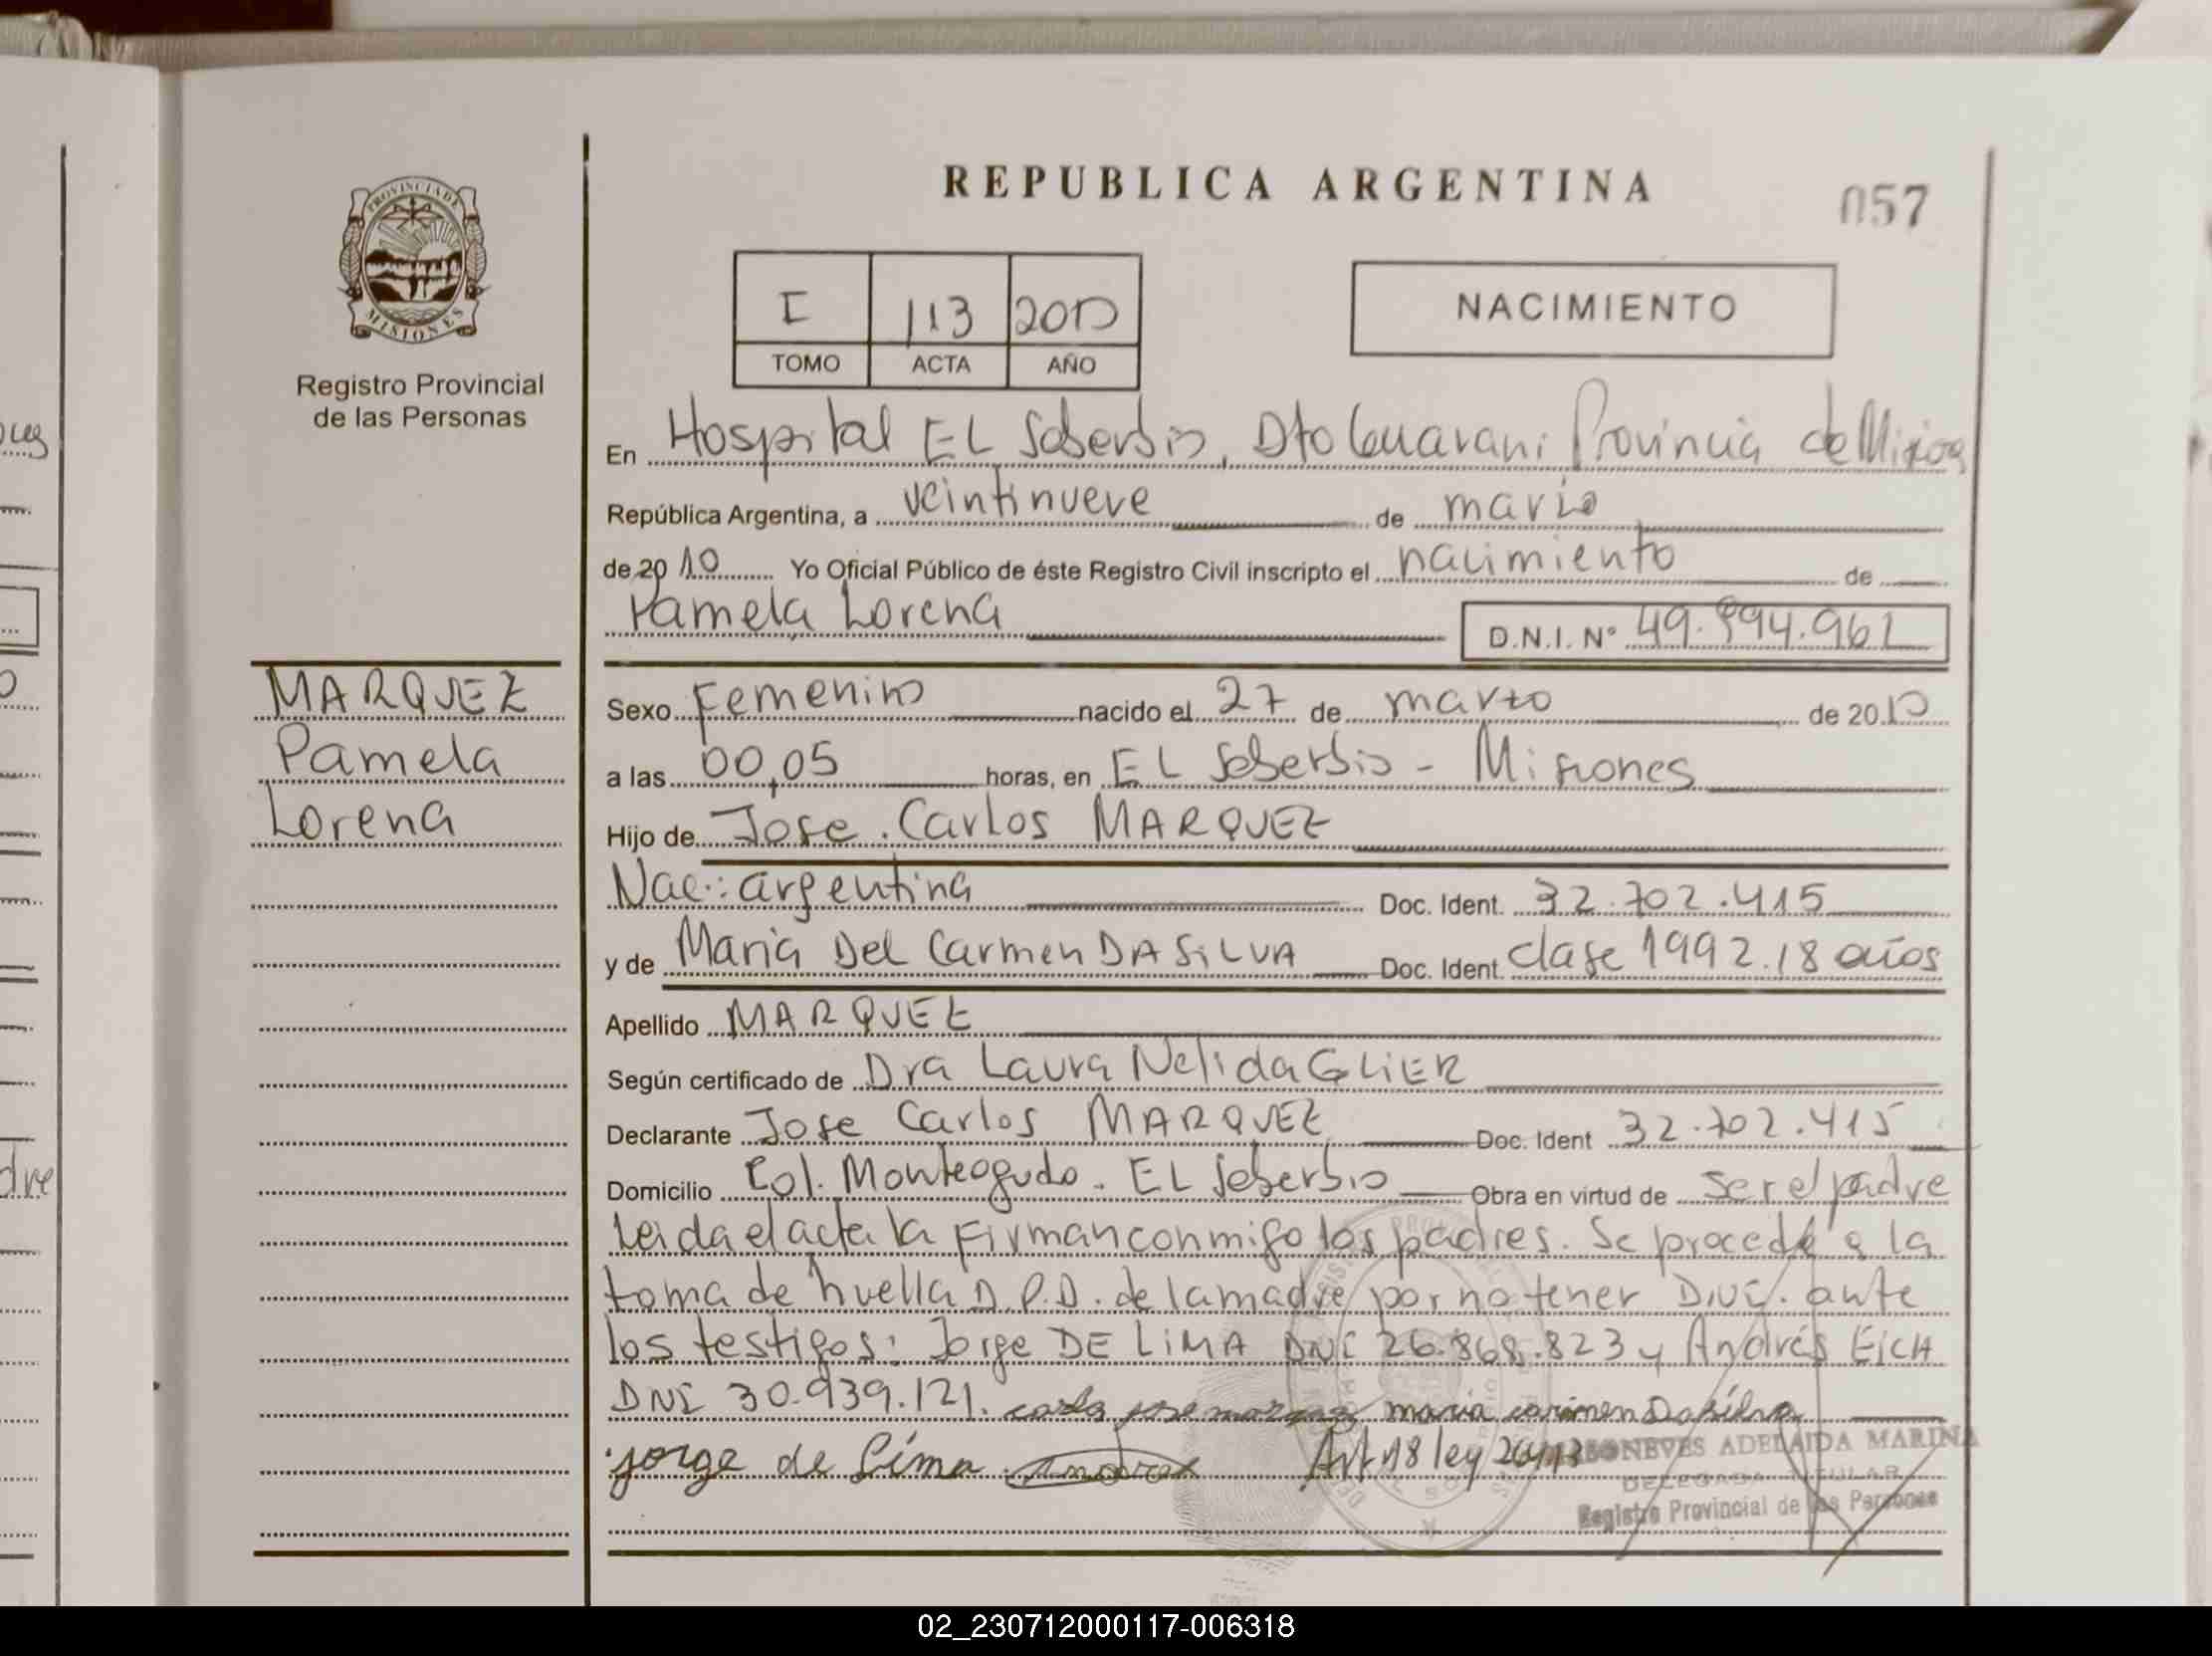 REPUBLICA ARGENTINA
057
PROVINCIA DE
MISIONES
Registro Provincial
de las Personas
I 113 2010
TOMO ACTA AÑO
NACIMIENTO
En Hospital EL Soberbio, Dto Guarani Provincia de Misiones
República Argentina, a veintinueve de marzo
de 2010 Yo Oficial Público de éste Registro Civil inscripto el nacimiento de
Pamela Lorena D.N.I. Nº 49.994.961
MARQUEZ
Pamela
Lorena
Sexo Femenino nacido el 27 de marzo de 2010
a las 00,05 horas, en EL Soberbio - Misiones
Hijo de Jose Carlos MARQUEZ
Nac.: argentina Doc. Ident. 32.702.415
y de Maria Del Carmen DA SILVA Doc. Ident. clase 1992.18 años
Apellido MARQUEZ
Según certificado de Dra Laura Nelida GLIER
Declarante Jose Carlos MARQUEZ Doc. Ident 32.702.415
Domicilio Col. Monteagudo. EL Soberbio Obra en virtud de ser el padre
Leida el acta la firman conmigo los padres. Se procede a la
toma de huella D.P.D. de la madre por no tener D.N.I. ante
los testigos: Jorge DE LIMA DNI 26.868.823 y Andrés EICH
DNI 30.939.121. maria carmen Dasilva
jorge de Lima Art 18 ley 26413
NEVES ADELAIDA MARINA
DELEGADA TITULAR
Registro Provincial de las Personas
02_230712000117-006318